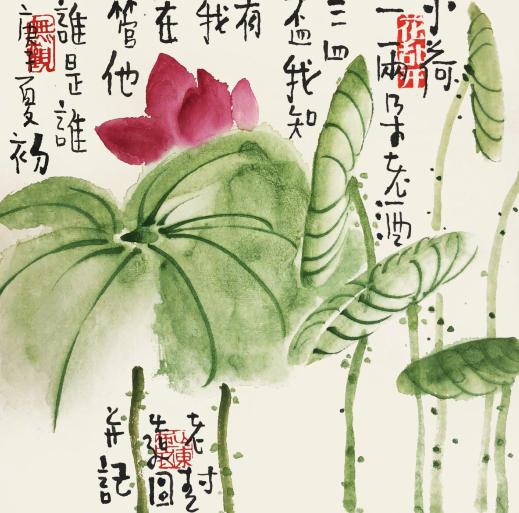 小荷
一兩朵老酒
三四
盃我知
有
我
在
管他
誰是誰
庚子夏初
無觀
老村
造圖
并記